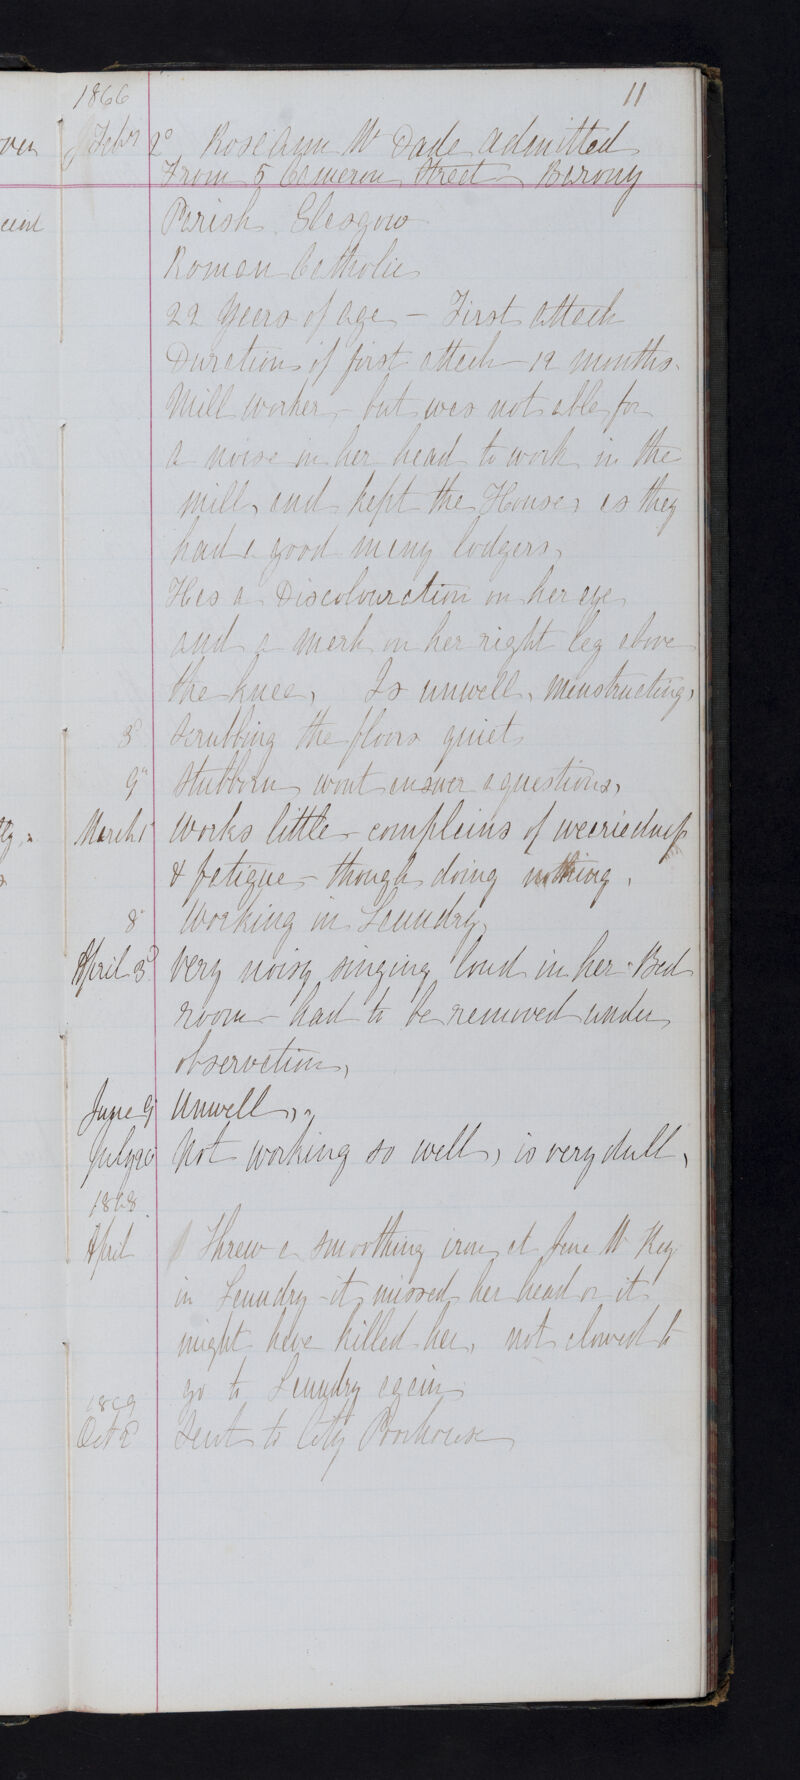 1866
11
Febry 2d Rose Ann Mc Dade admitted
From 5 Cameron Street Barony
Parish Glasgow
Roman Catholic
22 Years of age - First attack
Duration of first attack - 12 months.
Mill worker - but was not able for
a noise in her head to work in the
mill, and kept the House, as they
had a good many lodgers,
Has a Discolouration on her eye
and a mark on her right leg above
the knee, Is unwell, menstructing,
3d Scrubbing the floors quiet
9" Stubborn wont answer a questions,
March 1 Works little - complains of weariedness
& fatigue - though doing nothing,
8" Working in Laundry,
April 3d Very noisy singing loud in her Bed
room - had to be removed under
observation,
June 9 Unwell,
July 20 Not working so well, is very dull,
1868
April Threw a smoothing iron at Jane Mc Kay
in Laundry - it missed her head or it
might have killed her, not alowed to
go to Laundry again
1869
Oct 2 Sent to City Poorhouse
oven